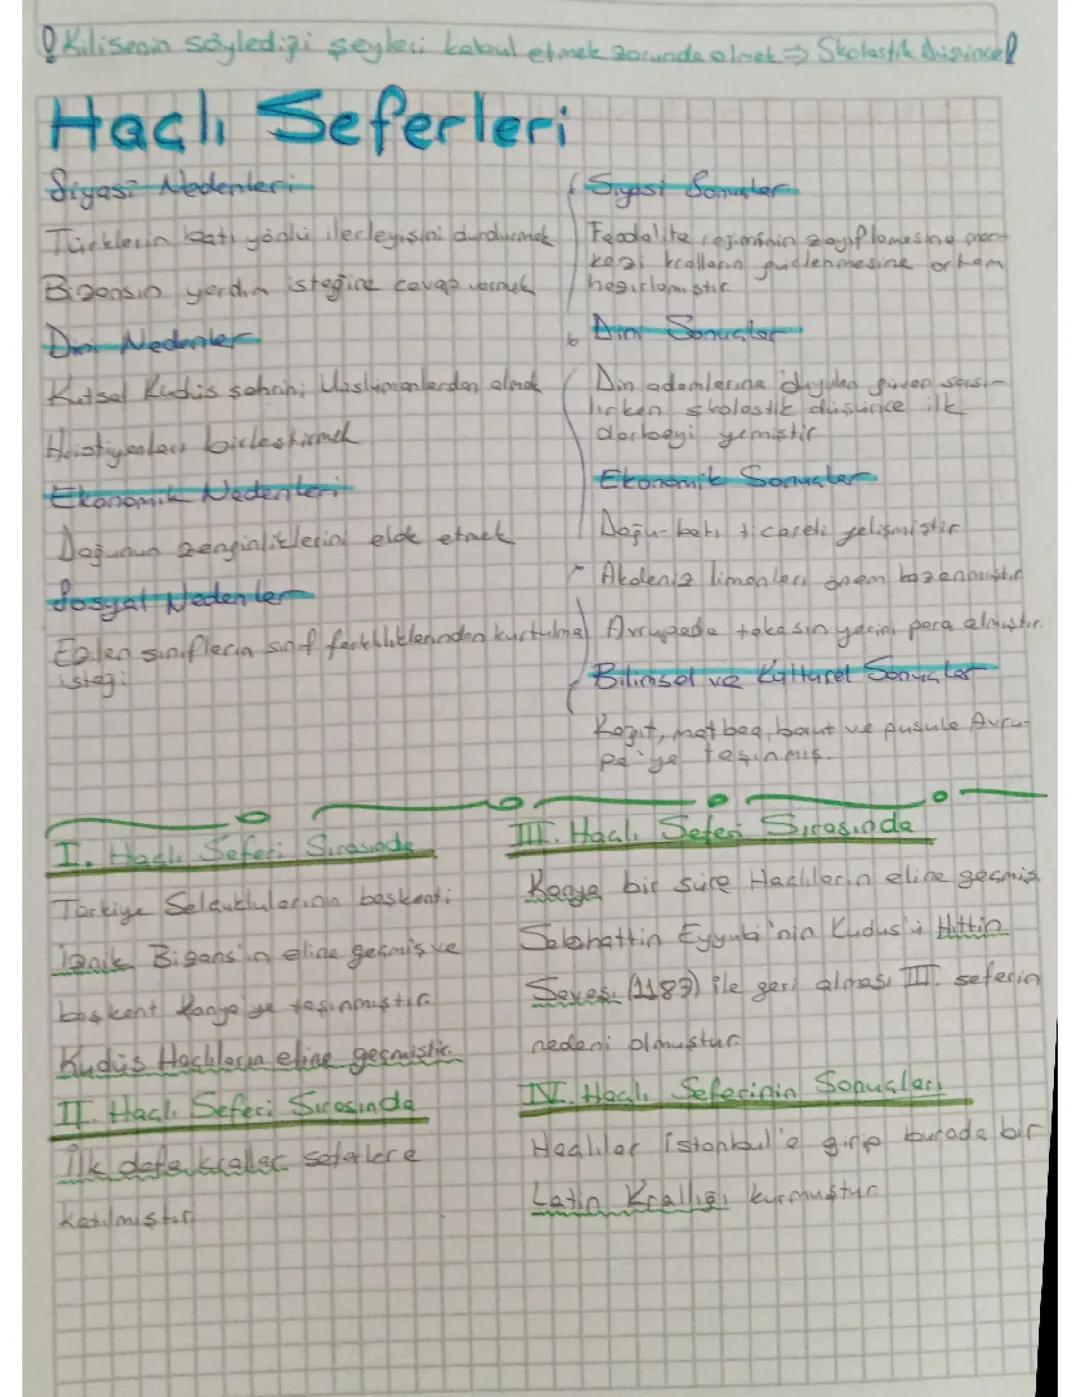 ! Kilisenin söylediği şeyleri kabul etmek zorunda olmak => Skolastik Düşünce!
Haçlı Seferleri
Siyasi Nedenleri
Türklerin batı yönlü ilerleyişini durdurmak
Bizansın yardım isteğine cevap vermek
Dini Nedenler
Kutsal Kudüs şehrini Müslümanlardan almak
Hristiyanları birleştirmek
Ekonomik Nedenleri
Doğunun zenginliklerini elde etmek
Sosyal Nedenler
Ezilen sınıfların sınıf farklılıklarından kurtulma
isteği
Siyasi Sonuçlar
Feodalite rejiminin zayıflamasına mer-
kezi kralların güçlenmesine ortam
hazırlamıştır
Dini Sonuçlar
Din adamlarına duyulan güven sarsı-
lırken skolastik düşünce ilk
darbeyi yemiştir
Ekonomik Sonuçlar
Doğu-batı ticareti gelişmiştir
Akdeniz limanları önem kazanmıştır
Avrupada takasın yerini para almıştır.
Bilimsel ve Kültürel Sonuçlar
Kağıt, matbaa, barut ve pusula Avru-
pa'ya taşınmış.
I. Haçlı Seferi Sırasında
Türkiye Selçuklularının başkenti
İznik Bizans'ın eline geçmiş ve
başkent Konya'ya taşınmıştır.
Kudüs Haçlıların eline geçmiştir.
II. Haçlı Seferi Sırasında
İlk defa krallar seferlere
katılmıştır
III. Haçlı Seferi Sırasında
Konya bir süre Haçlıların eline geçmiş
Selahattin Eyyubi'nin Kudus'ü Hıttin
Savaşı (1187) ile geri alması III. seferin
nedeni olmuştur
IV. Haçlı Seferinin Sonuçları
Haçlılar İstanbul'a girip burada bir
Latin Krallığı kurmuştur